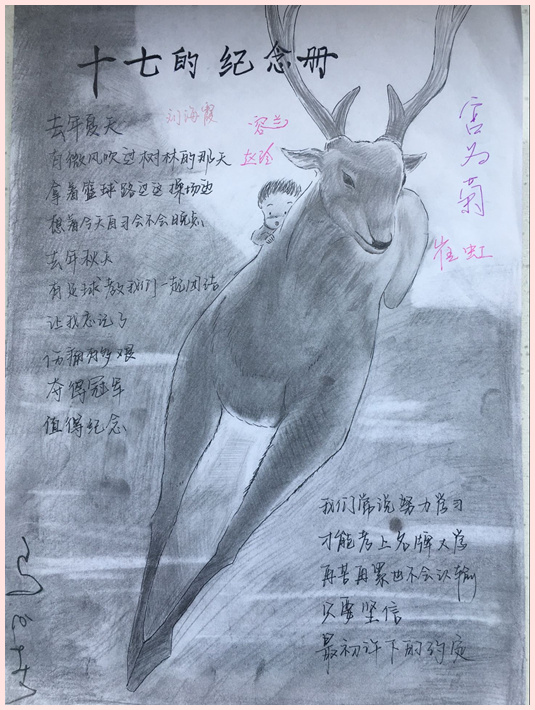 十七的纪念册
去年夏天
刘海霞
有微风吹过树林的那天
拿着篮球路过这操场边
想着今天自习会不会晚点
去年秋天
有足球教我们一起团结
让我忘记了
伤痛有多艰
夺得冠军
值得纪念
宫为菊
崔虹
我们常说努力学习
才能考上名牌大学
再苦再累也不会认输
只要坚信
最初许下的约定